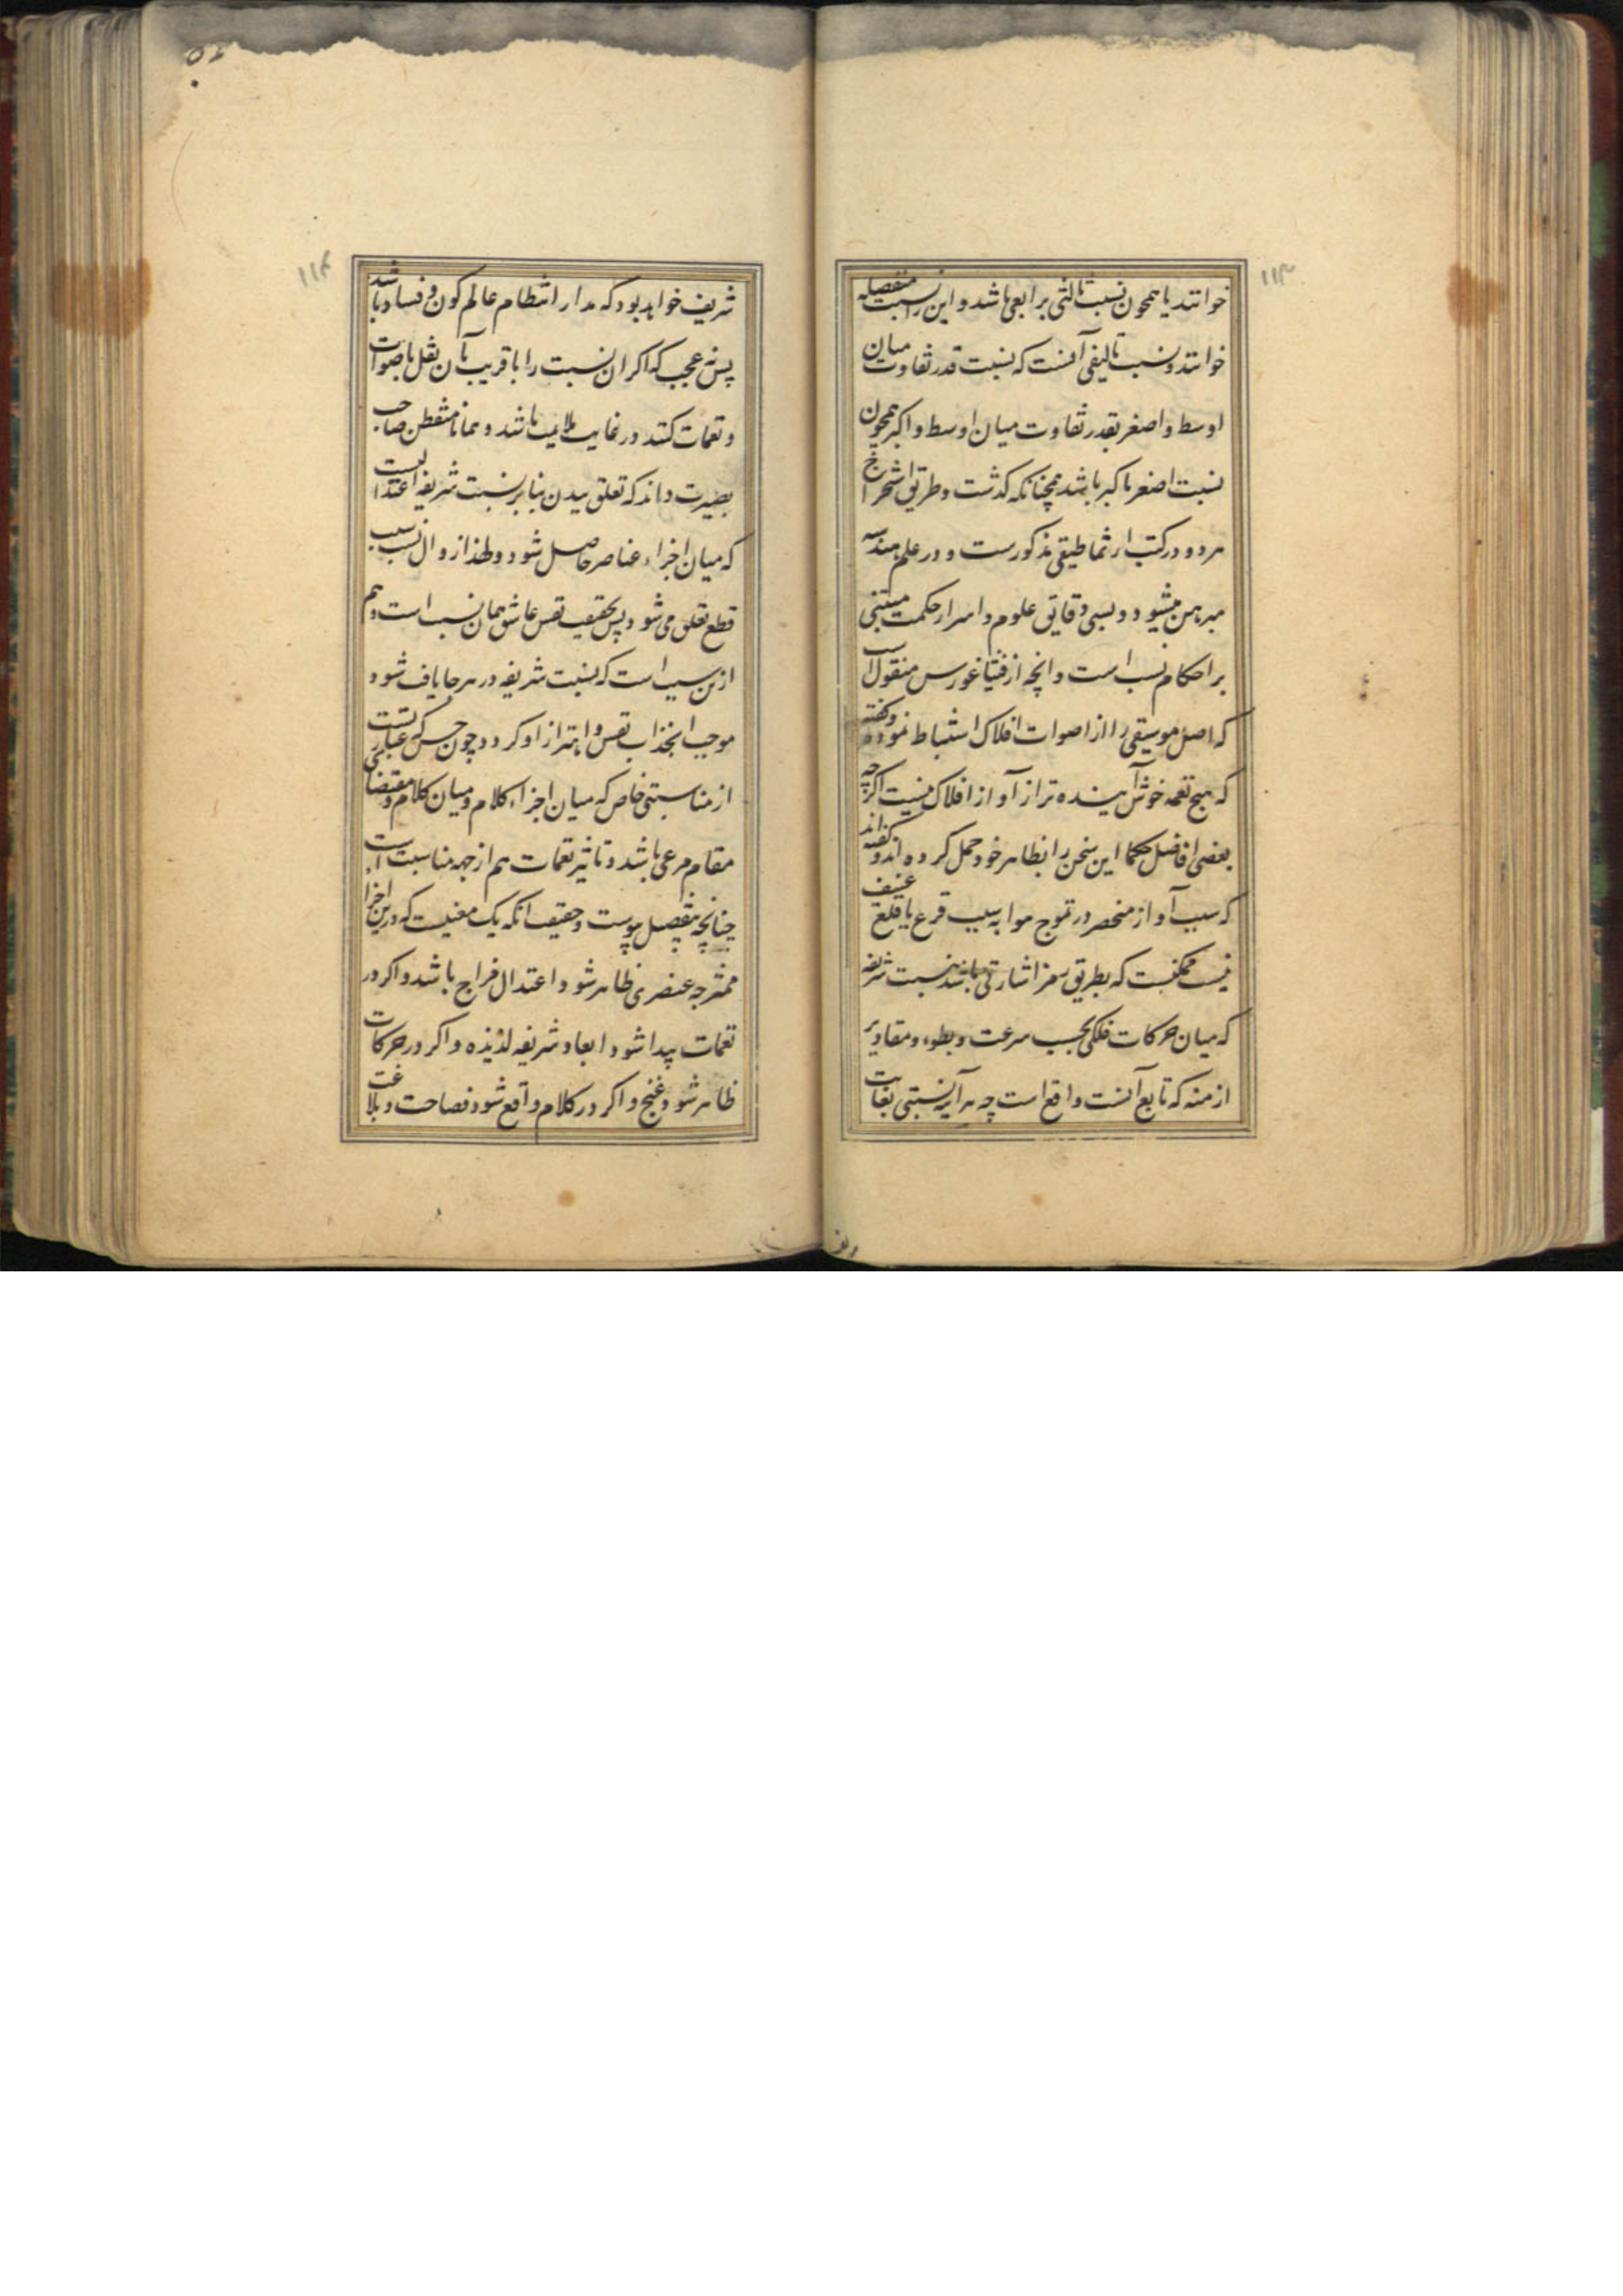 ۱۱۳
خوانند یا همچون نسبت ثالثی برابعی باشد و این را نسبت منفصله
خوانند و نسبت تالیفی آنست که نسبت قدر تفاوت میان
اوسط و اصغر بقدر تفاوت میان اوسط و اکبر همچون
نسبت اصغر باکبر باشد همچنانکه کذشت و طریق استخراج
هر دو در کتب ارثماطیقی مذکورست و در علم هندسه
مبرهن میشود و بسی دقایق علوم و اسرار حکمت مبتنی
بر احکام نسب است و انچه از فیثاغورس منقول است
که اصل موسیقی را از اصوات افلاک استنباط نموده و کفته
که هیچ نغمه خوش آینده تر از آواز افلاک نیست اکرچه
بعضی افاضل حکما این سخن را بظاهر خود حمل کرده اند و کفته اند
که سبب آواز منحصر در تموج هوا به سبب قرع یا قلع عنیف
نیست ممکنست که بطریق رمز اشارتی باشد بنسبت شریفه
که میان حرکات فلکی بحسب سرعت و بطوء و مقادیر
ازمنه که تابع آنست واقع است چه هر آینه نسبتی بغایت
۱۱۴
شریف خواهد بود که مدار انتظام عالم کون و فساد باشد
پس نه عجب که اکر ان نسبت را با قریب بآن نقل باصوات
و نغمات کنند در غایت ملایمت باشد و همانا متفطن صاحب
بصیرت داند که تعلق ببدن بنابر نسبت شریفه اعتدالیست
که میان اجزاء عناصر حاصل شود و لهذا زوال نسبت سبب
قطع تعلق می شود و پس بحقیقت نفس عاشق همان نسب است و هم
ازین سبب است که نسبت شریفه در هر جا یافت شود
موجب انجذاب نفس و اهتزاز او کردد چون حسن که عبارتست
از مناسبتی خاص که میان اجزاء کلام و میان کلام و مقتضای
مقام مرعی باشد و تاثیر نغمات هم از جهه مناسبت است
چنانچه بتفصیل پیوست و حقیقت انکه یک معنیست که در بن اجزا
ممتزجه عنصری ظاهر شود اعتدال مزاج باشد و اکر در
نغمات پیدا شود ابعاد شریفه لذیذه و اکر در حرکات
ظاهر شود غنج و اکر در کلام واقع شود فصاحت و بلاغت